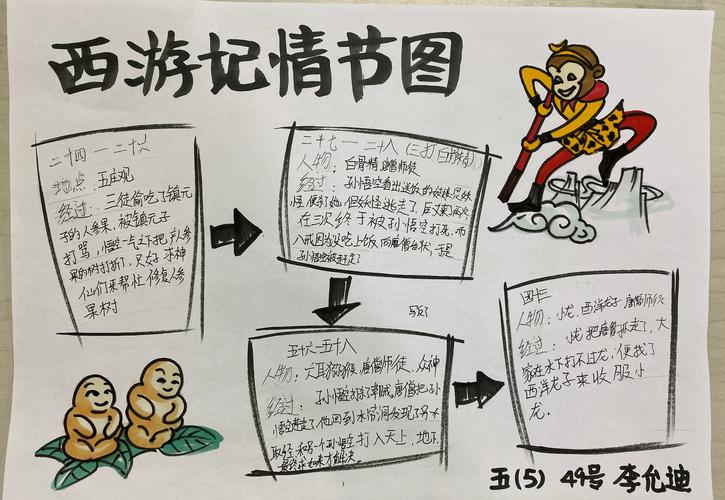 西游记情节图
二十四一二十六
地点：五庄观
经过：三徒偷吃了镇元
子的人参果，被镇元子
打骂，悟空一气之下把人参
果的树打折了，只好求神
仙们来帮忙修复人参
果树
二十七一二十八（三打白骨精）
人物：白骨精，唐僧师徒
经过：孙悟空看出送饭的姑娘是妖
怪，便打她，但妖怪逃走了，后又来两次
在三次终于被孙悟空打死，而
八戒因为没吃上饭，向唐僧告状，于是
孙悟空被赶走了
写反了
五十六一五十八
人物：六耳猕猴，唐僧师徒，众神
经过：孙悟空打杀了草贼，唐僧把孙
悟空赶走了，他回到水帘洞发现了另一个
取经，和另一个孙悟空打入天上，地下
最终求如来才解决。
四十三
人物：小龙，西洋龙子，唐僧师徒
经过：小龙把唐僧抓走了，大
家在水下打不过龙，便找了
西洋龙子来收服小
龙。
五(5) 49号 李允迪